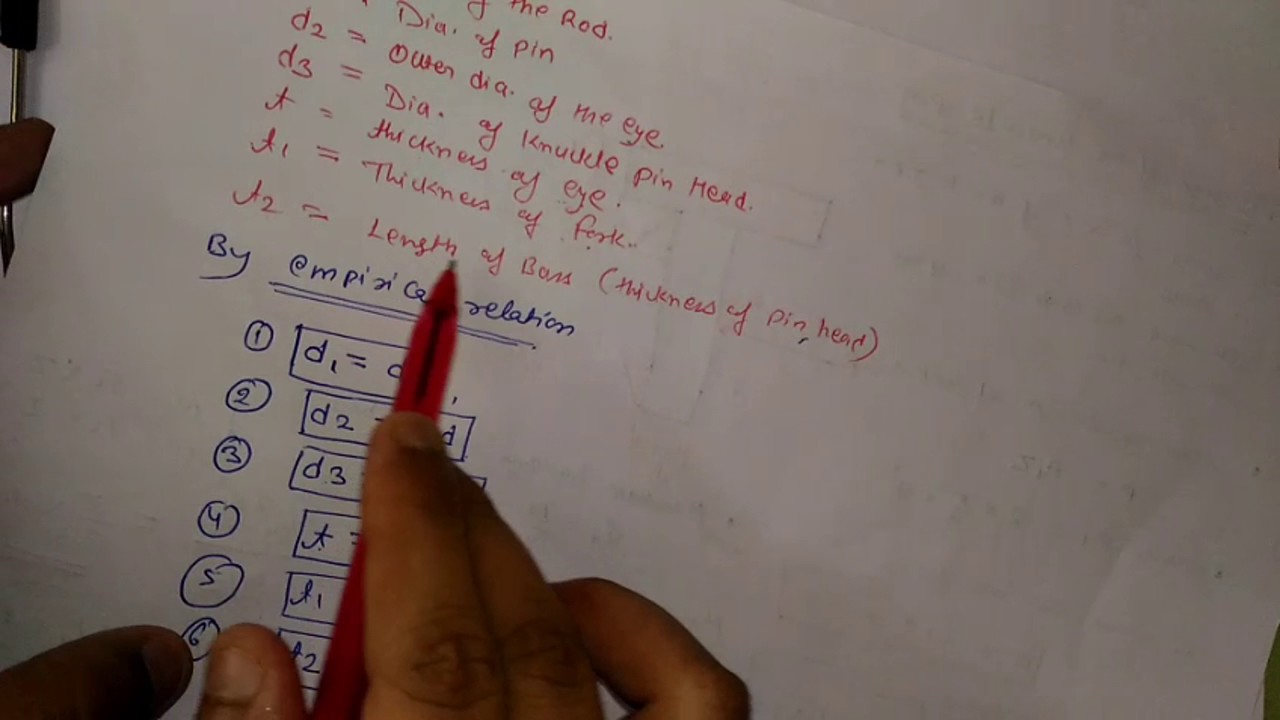 of the Rod.
Dia. of pin
d2 = Outer dia. of the eye.
d3 = Dia. of Knuckle pin Head.
t = thickness of eye.
t1 = Thickness of fork.
t2 = Length of Boss (thickness of pin head)
By empirical relation
① d1 = d
② d2 = d
③ d3
④ t =
⑤ t1
⑥ t2